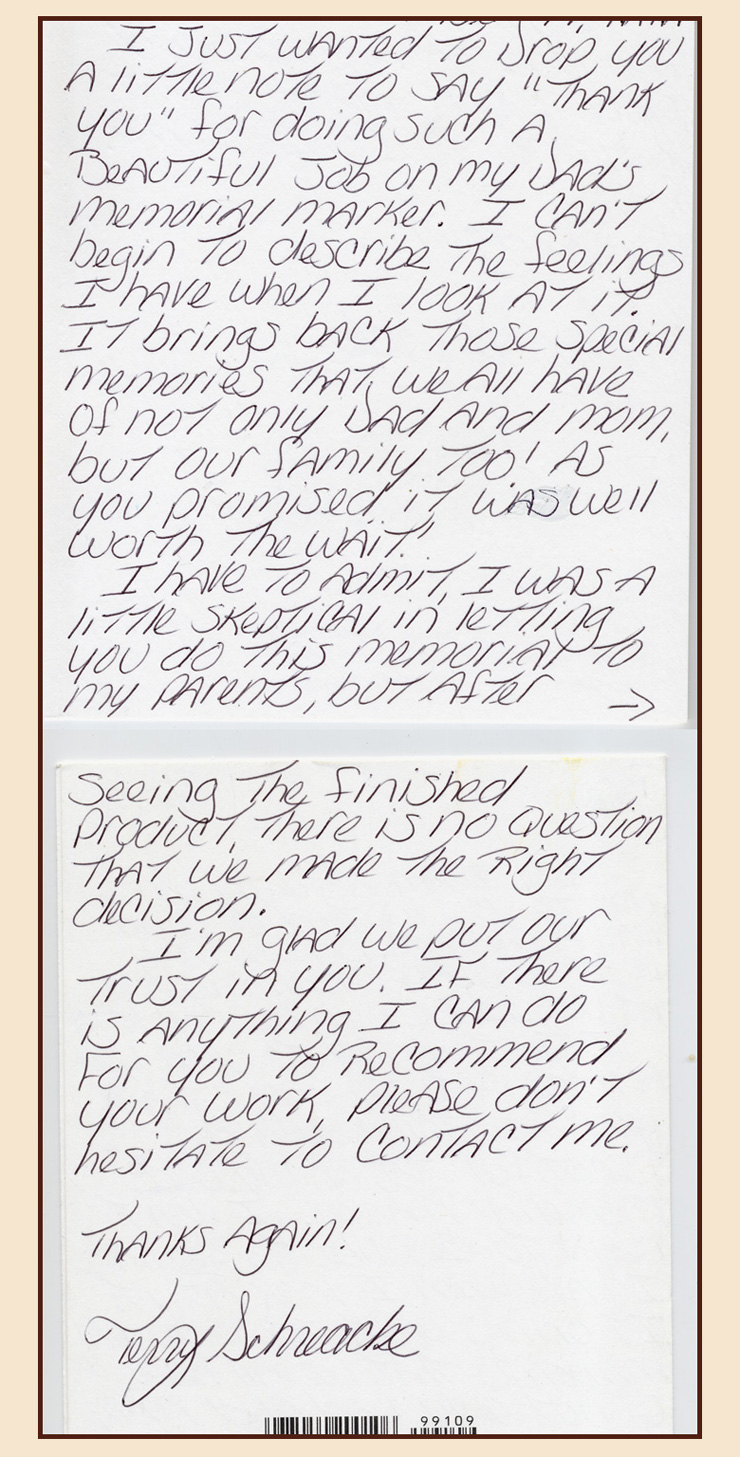 I JUST WANTED TO Drop you
A liTTle noTe TO SAY "THANK
you" for doing such A
BeAUTiful Job on my DAd's
memoriAl mArker. I CAn'T
begin To describe The feelings
I hAve when I look AT iT.
IT brings bACK Those SpeciAl
memories THAT we All hAve
of noT only DAd And mom,
buT our fAmily Too! As
you promised iT wAs well
worth The wAiT!
I hAve To AdmiT, I wAs A
liTTle SkepTiCAl in leTTing
you do This memoriAl To
my pArenTs, buT AfTer →
Seeing The finished
ProducT, There is no QuesTion
THAT we mAde The RighT
decision.
I'm glAd we puT our
TrusT in you. IF There
is AnyThing I CAn do
For you To Recommend
your work, pleAse don'T
hesiTATe To ConTACT me.
THAnks AgAin!
99109